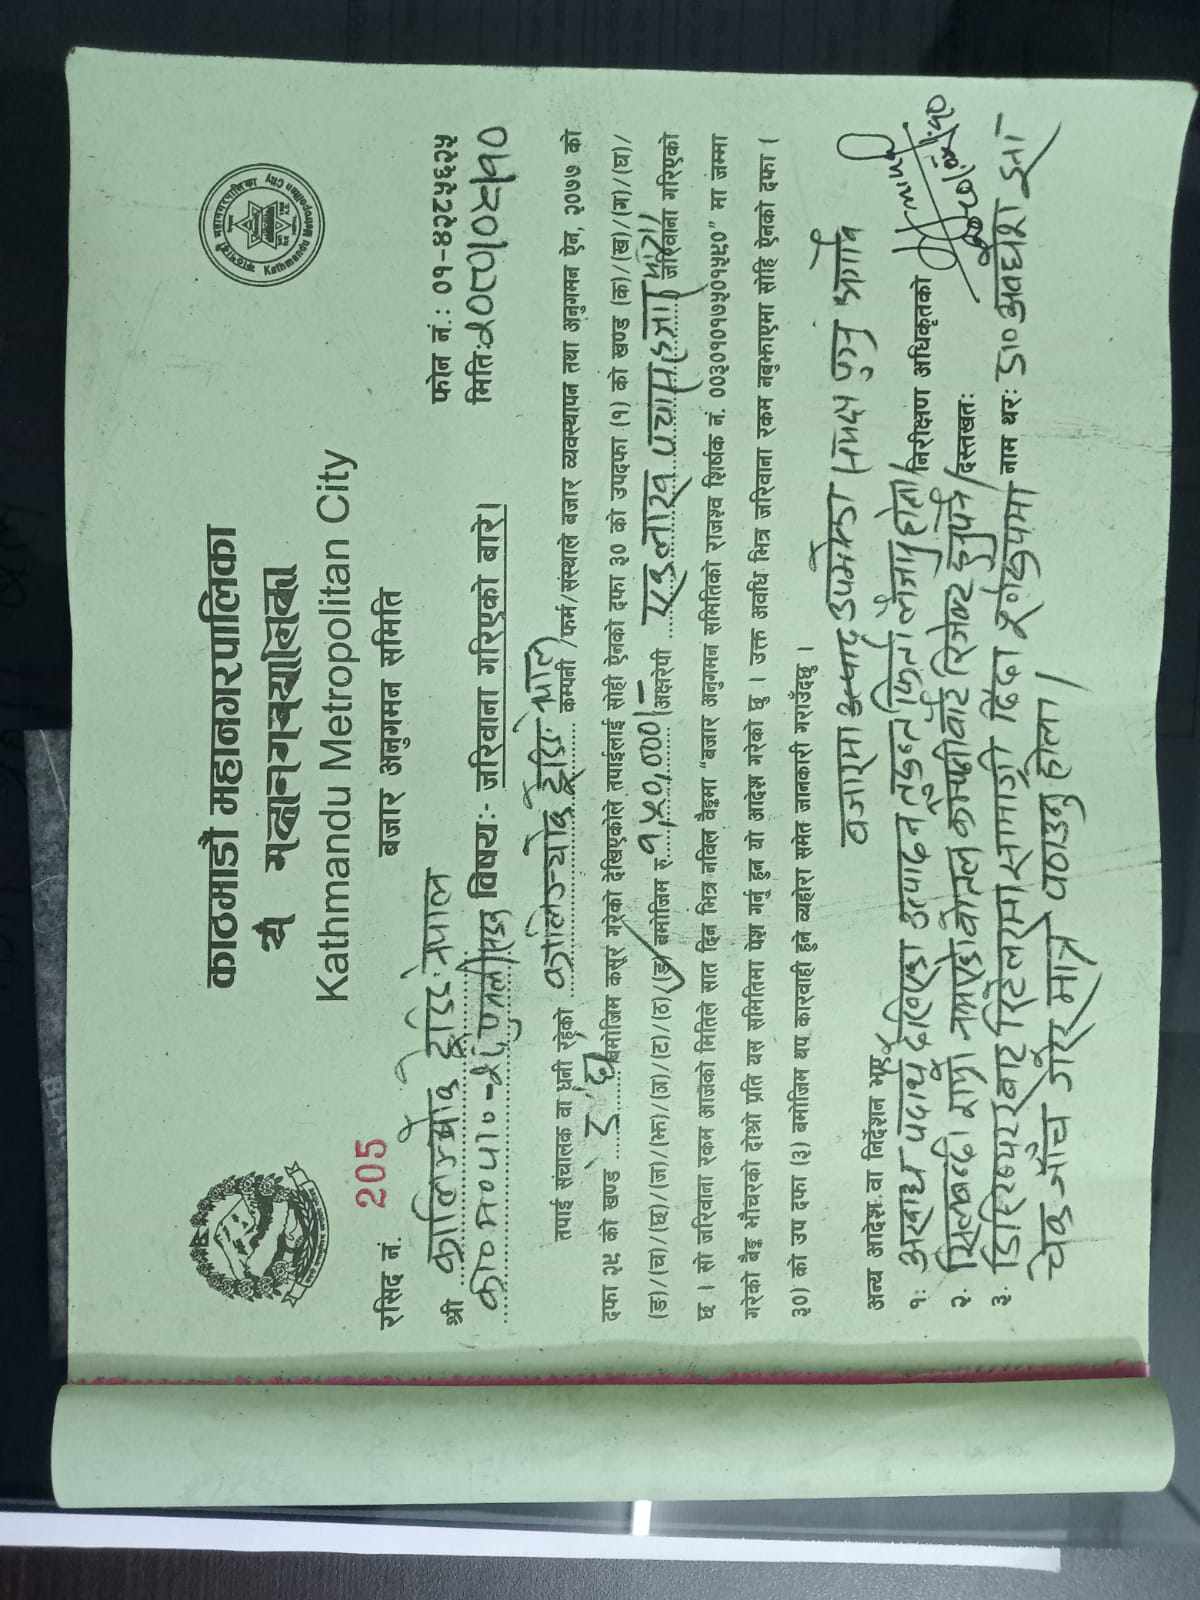 काठमाडौं महानगरपालिका
Kathmandu Metropolitan City
बजार अनुगमन समिति
काठमाडौं महानगरपालिका
Kathmandu Metropolitan City
रसिद नं. 205
फोन नं.: ०१-४२८५६२५
श्री कालिञ्चोक ट्रेडिङ नेपाल
मिति: २०८५/०८/१०
का०म०पा०-२८
विषय:- जरिवाना गरिएको बारे।
तपाई संचालक वा धनी रहेको कालिञ्चोक ट्रेडिङ नेपाल कम्पनी /फर्म/संस्थाले बजार व्यवस्थापन तथा अनुगमन ऐन, २०७७ को
दफा २५ को खण्ड ङ घ बमोजिम कसूर गरेको देखिएकोले तपाईलाई सोही ऐनको दफा ३० को उपदफा (१) को खण्ड (क)/(ख)/(ग)/(घ)/
(ङ)/(च)/(छ)/(ज)/(झ)/(ञ)/(ट)/(ठ)/(ड) बमोजिम रु. १,५०,०००/- अक्षरेपी एक लाख पचास हजार मात्र जरिवाना गरिएको
छ । सो जरिवाना रकम आजको मितिले सात दिन भित्र नबिल बैङ्कमा "बजार अनुगमन समितिको राजश्व शिर्षक नं. ००३०१०१७५०१५८०" मा जम्मा
गरेको बैङ्क भौचरको दोश्रो प्रति यस समितिमा पेश गर्नु हुन यो आदेश गरेको छु । उक्त अवधि भित्र जरिवाना रकम नबुझाएमा सोहि ऐनको दफा ।
३०) को उप दफा (३) बमोजिम थप कारवाही हुने व्यहोरा समेत जानकारी गराउँदछु ।
अन्य आदेश वा निर्देशन भए
बजारमा उत्पाद उपभोक्ता समक्ष पुग्नु अगाडि
१. अखाद्य पदार्थ देखिएका उत्पादन तुरुन्त फिर्ता लैजानु होला
निरीक्षण अधिकृतको
२. सिलबन्दी राम्रो नभएको बोतल कम्पनीबाट रिजेक्ट हुनुपर्ने
दस्तखत:
३. डिस्टिब्युटरबाट रिटेलरमा सामाग्री दिँदा पूर्णरूपमा
नाम थर: डा० अवधेश झा
चेक जाँच गरेर मात्र पठाउनु होला।